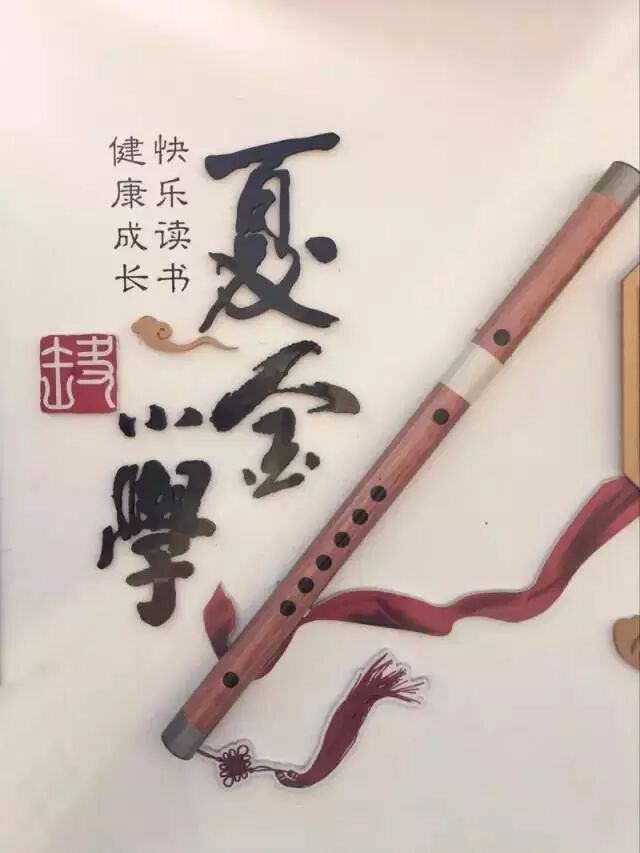 夏金
小學
快乐读书
健康成长